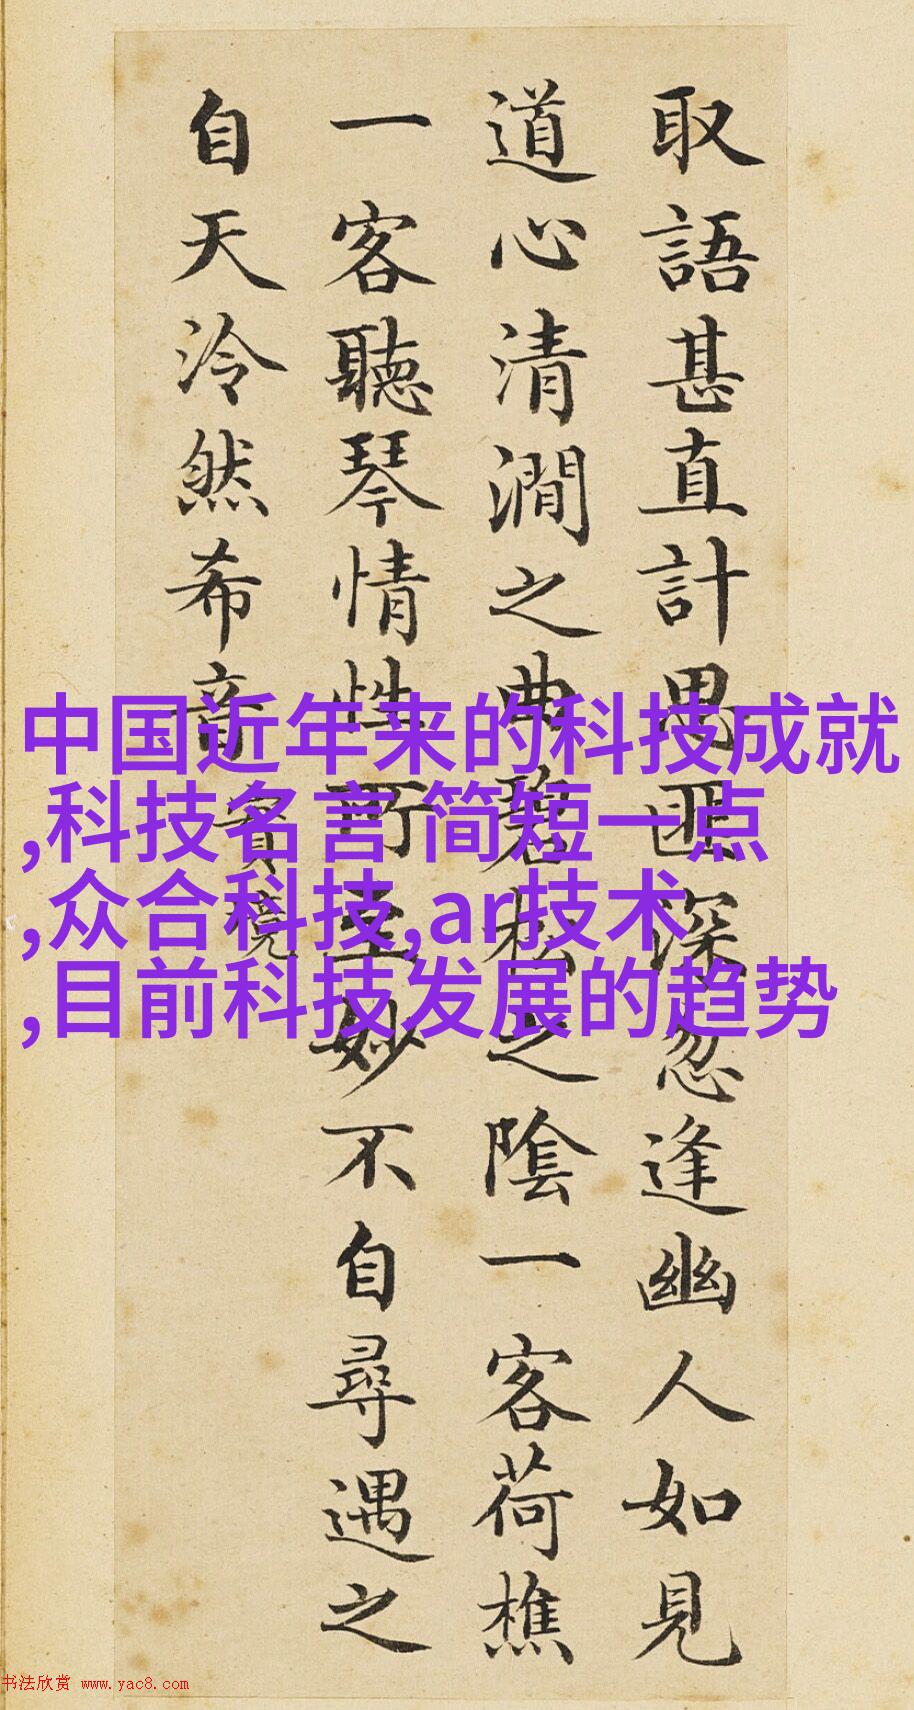 取語甚直計思匪深忽逢幽人如見
道心清澗之曲碧松之陰一客荷樵
一客聽琴情性所至妙不自尋遇之
自天泠然希音
實境
中国近年来的科技成就
,科技名言 简短一点
,众合科技,ar技术
,目前科技发展的趋势
书法欣赏 www.yac8.com